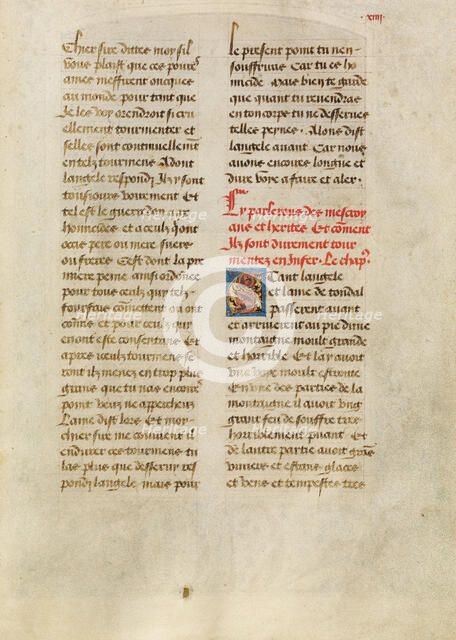 ·xiiij·
Chier sire dittes moy sil
vous plaist que ces poures
ames meffirent oncques
au monde pour tant que
Je les voy orendroit si cru
ellement tourmenter et
selles sont continuelment
en telz tourmens Adont
langele respondi Ilz y sont
tousiours voirement Et
tel est le guerdon deux
homicides et a ceulz quont
occis pere ou mere suers
ou freres Cest dont la pre
miere peine ainsi ordonnee
pour tous ceulz qui telz
fourfais commettent ou ont
commis et pour ceulz qui
en ont este consentans Et
apres iceulz tourmens se
ront ilz menez en trop plus
grans que tu nas encores
point veuz ne apperceuz
Lame dist lors Et mon
chier sire me convient il
endurer ces tourmens tu
las plus que desseruy res
pondi langele mais pour
le present point tu nen
souffriras Car tu es ho
micide Mais bien te garde
que quant tu reuendras
en ton corpz tu ne desserues
telles peynes · Alons dist
langele auant Car nous
auons encores longue et
dure voye a faire et aler ·
Cy parlerons des mescroy
ans et herites Et coment
Ilz sont durement tour
mentez en Infer · Le chap.
Tant langele
et lame de tondal
passerent auant
et arriuerent au pie dune
montaigne moult grande
et horrible Et la y auoit
une voye moult estroitte
En une des parties de la
montaigne il auoit ung
grant feu de souffre tres
horriblement puant Et
de lautre partie auoit grans
riuieres et estans glaces
et vens et tempestes tres
Heritage
Images
Heritage
Images
Heritage
Images